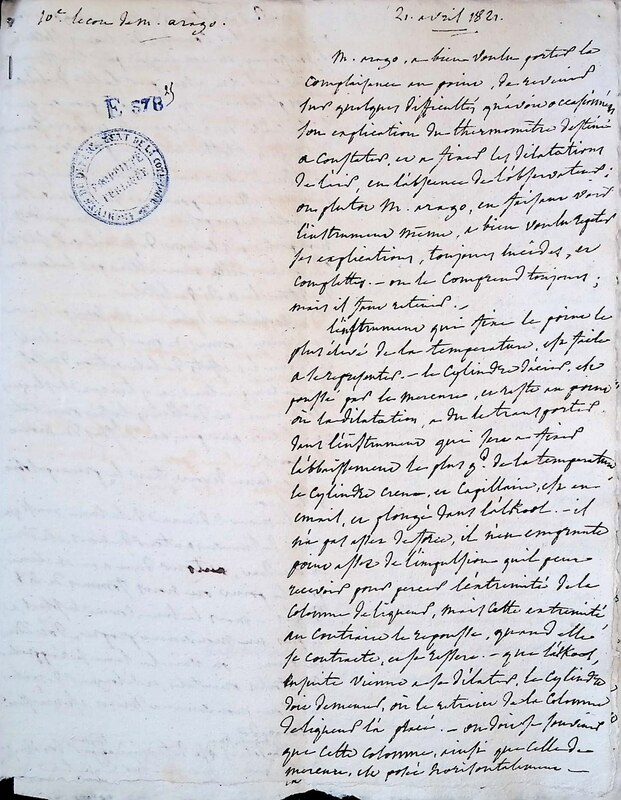 10e lecon de m. arago.
21. avril 1821.
E 578
m. arago, a bien voulu porter la
complaisance au point, de revenir
sur quelques difficultés qu'avoit occasionnées
son explication du thermomètre destiné
a constater, et a fixer les dilatations
de l'air, en l'absence de l'observateur;
ou plutot M. arago, en faisant voir
l'instrument même, a bien voulu repeter
ses explications, toujours lucides, et
complettes. - on le comprend toujours;
mais il faut retenir. -
l'instrument qui fixe le point le
plus élevé de la temperature, est facile
a se representer. - le cylindre d'acier, est
poussé par le mercure, et reste au point
où la dilatation, a du le transporter.
dans l'instrument qui sert a fixer
l'abbaissement le plus gd. de la temperature
le cylindre creux, et capillaire, est en
email, et plongé dans l'alkool. - il
n'a pas assez de force, il n'en emprunte
point assez de l'impulsion qu'il peut
recevoir pour percer l'extremité de la
colonne de liqueur, mais cette extremité
au contraire le repousse, quand elle
se contracte, et se resserre. - que l'alkool,
ensuite vienne a se dilater, le cylindre
doit demeurer, où le retrait de la colonne
de liqueur l'a placé. - on doit se souvenir
que cette colonne, ainsi que celle de
mercure, est posée horisontalement -